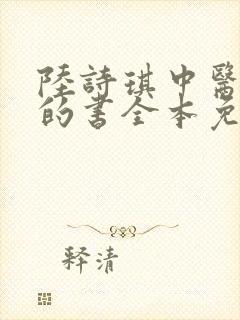 陸詩琪中醫
的書全本免
释清